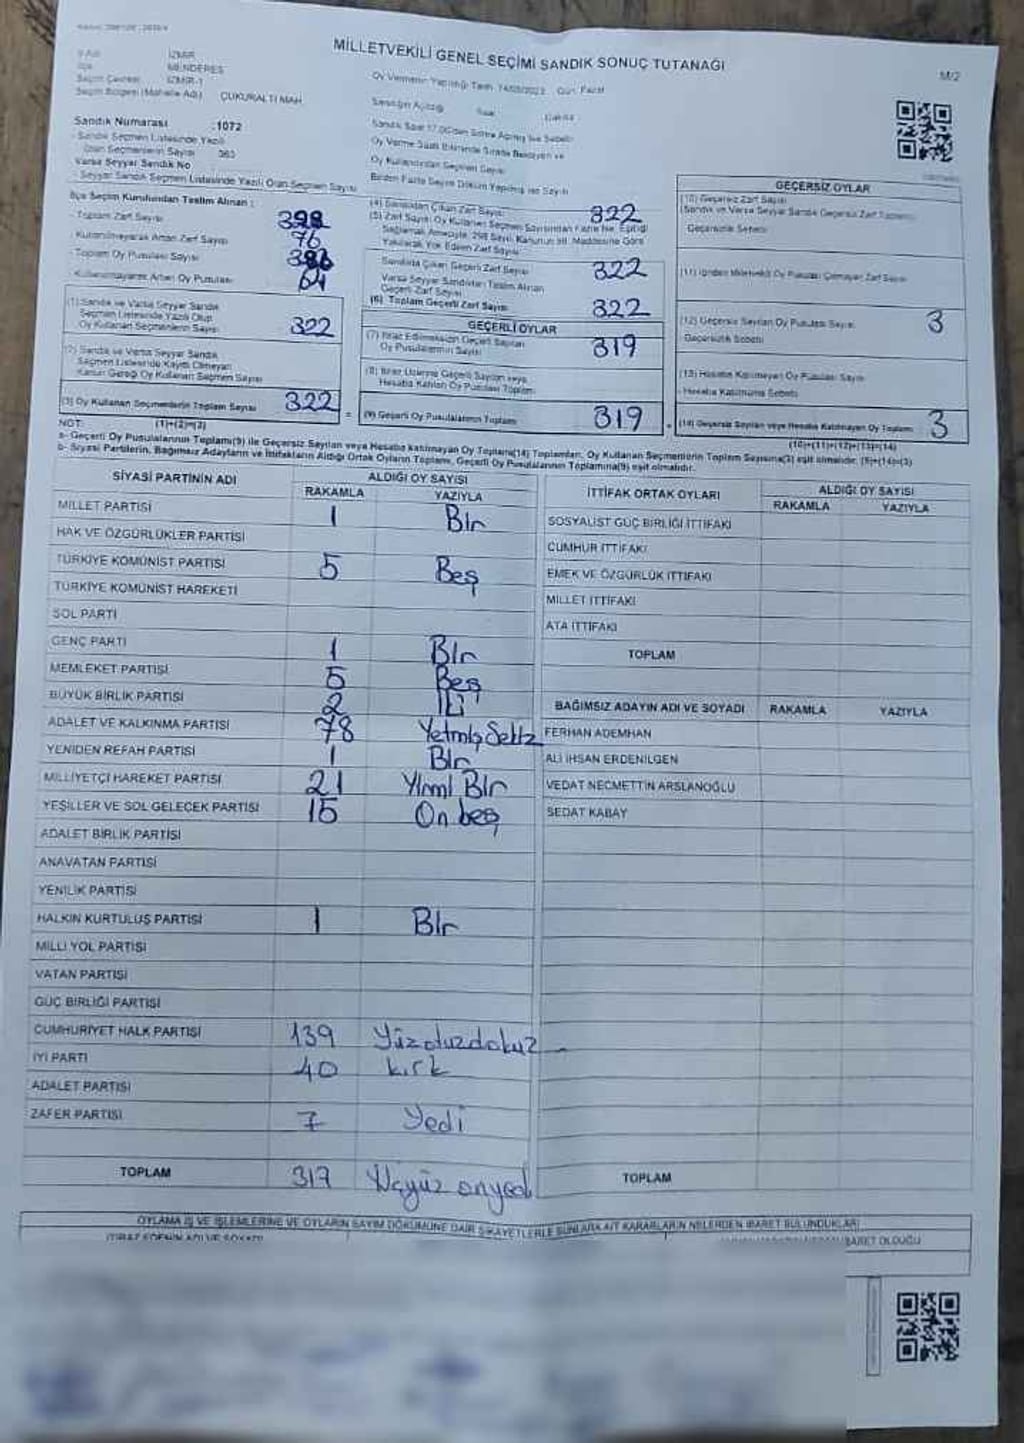 MİLLETVEKİLİ GENEL SEÇİMİ SANDIK SONUÇ TUTANAĞI
M/2
İZMİR
MENDERES
Seçim Çevresi İZMİR-1
Seçim Bölgesi (Mahalle Adı) ÇUKURALTI MAH.
Sandık Numarası :1072
Sandık Seçmen Listesinde Yazılı
Olan Seçmenlerin Sayısı 363
Varsa Seyyar Sandık No
Seyyar Sandık Seçmen Listesinde Yazılı Olan Seçmen Sayısı
Oy Vermenin Yapıldığı Tarih 14/05/2023 Gün Pazar
Sandığın Açıldığı Saat Dakika
Oy Kullandırılan Seçmen Sayısı
Birden Fazla Sayım Döküm Yapılmış ise Sayısı
İlçe Seçim Kurulundan Teslim Alınan :
- Toplam Zarf Sayısı 398
- Kullanılmayarak Artan Zarf Sayısı 76
- Toplam Oy Pusulası Sayısı 386
- Kullanılmayarak Artan Oy Pusulası 64
(1) Sandık ve Varsa Seyyar Sandık
Seçmen Listesinde Yazılı Olup
Oy Kullanan Seçmenlerin Sayısı 322
(2) Sandık ve Varsa Seyyar Sandık
Seçmen Listesinde Kayıtlı Olmayan
Kanun Gereği Oy Kullanan Seçmen Sayısı
(3) Oy Kullanan Seçmenlerin Toplam Sayısı 322
(4) Sandıktan Çıkan Zarf Sayısı 322
Sandıkta Çıkan Geçerli Zarf Sayısı 322
Varsa Seyyar Sandıktan Teslim Alınan
Geçerli Zarf Sayısı
(6) Toplam Geçerli Zarf Sayısı 322
GEÇERLİ OYLAR
(7) İtiraz Edilmeksizin Geçerli Sayılan
Oy Pusulalarının Sayısı 319
(8) İtiraz Üzerine Geçerli Sayılan veya
Hesaba Katılan Oy Pusulası Toplamı
= (9) Geçerli Oy Pusulalarının Toplamı 319
GEÇERSİZ OYLAR
(10) Geçersiz Zarf Sayısı
Geçersizlik Sebebi
(11) İçinden Milletvekili Oy Pusulası Çıkmayan Zarf Sayısı
(12) Geçersiz Sayılan Oy Pusulası Sayısı 3
Geçersizlik Sebebi
(13) Hesaba Katılmayan Oy Pusulası Sayısı
- Hesaba Katılmama Sebebi
(14) Geçersiz Sayılan veya Hesaba Katılmayan Oy Toplamı 3
NOT: (1)+(2)=(3)
(10)+(11)+(12)+(13)=(14)
a- Geçerli Oy Pusulalarının Toplamı(9) ile Geçersiz Sayılan veya Hesaba katılmayan Oy Toplamı(14) Toplamları, Oy Kullanan Seçmenlerin Toplam Sayısına(3) eşit olmalıdır. (9)+(14)=(3)
b- Siyasi Partilerin, Bağımsız Adayların ve İttifakların Aldığı Ortak Oyların Toplamı, Geçerli Oy Pusulalarının Toplamına(9) eşit olmalıdır.
SİYASİ PARTİNİN ADI ALDIĞI OY SAYISI
RAKAMLA YAZIYLA
MİLLET PARTİSİ 1 Bir
HAK VE ÖZGÜRLÜKLER PARTİSİ
TÜRKİYE KOMÜNİST PARTİSİ 5 Beş
TÜRKİYE KOMÜNİST HAREKETİ
SOL PARTİ
GENÇ PARTİ 1 Bir
MEMLEKET PARTİSİ 5 Beş
BÜYÜK BİRLİK PARTİSİ 2 İki
ADALET VE KALKINMA PARTİSİ 78 Yetmiş Sekiz
YENİDEN REFAH PARTİSİ 1 Bir
MİLLİYETÇİ HAREKET PARTİSİ 21 Yirmi Bir
YEŞİLLER VE SOL GELECEK PARTİSİ 15 On beş
ADALET BİRLİK PARTİSİ
ANAVATAN PARTİSİ
YENİLİK PARTİSİ
HALKIN KURTULUŞ PARTİSİ 1 Bir
MİLLİ YOL PARTİSİ
VATAN PARTİSİ
GÜÇ BİRLİĞİ PARTİSİ
CUMHURİYET HALK PARTİSİ 139 Yüzotuzdokuz
İYİ PARTİ 40 kırk
ADALET PARTİSİ
ZAFER PARTİSİ 7 Yedi
TOPLAM 317 Üçyüz onyedi
İTTİFAK ORTAK OYLARI ALDIĞI OY SAYISI
RAKAMLA YAZIYLA
SOSYALİST GÜÇ BİRLİĞİ İTTİFAKI
CUMHUR İTTİFAKI
EMEK VE ÖZGÜRLÜK İTTİFAKI
MİLLET İTTİFAKI
ATA İTTİFAKI
TOPLAM
BAĞIMSIZ ADAYIN ADI VE SOYADI RAKAMLA YAZIYLA
FERHAN ADEMHAN
ALİ İHSAN ERDENİLGEN
VEDAT NECMETTİN ARSLANOĞLU
SEDAT KABAY
TOPLAM
OYLAMA İŞ VE İŞLEMLERİNE VE OYLARIN SAYIM DÖKÜMÜNE DAİR ŞİKAYETLERLE BUNLARA AİT KARARLARIN NELERDEN İBARET BULUNDUKLARI
İTİRAZ EDENİN ADI VE SOYADI
İBARET OLDUĞU